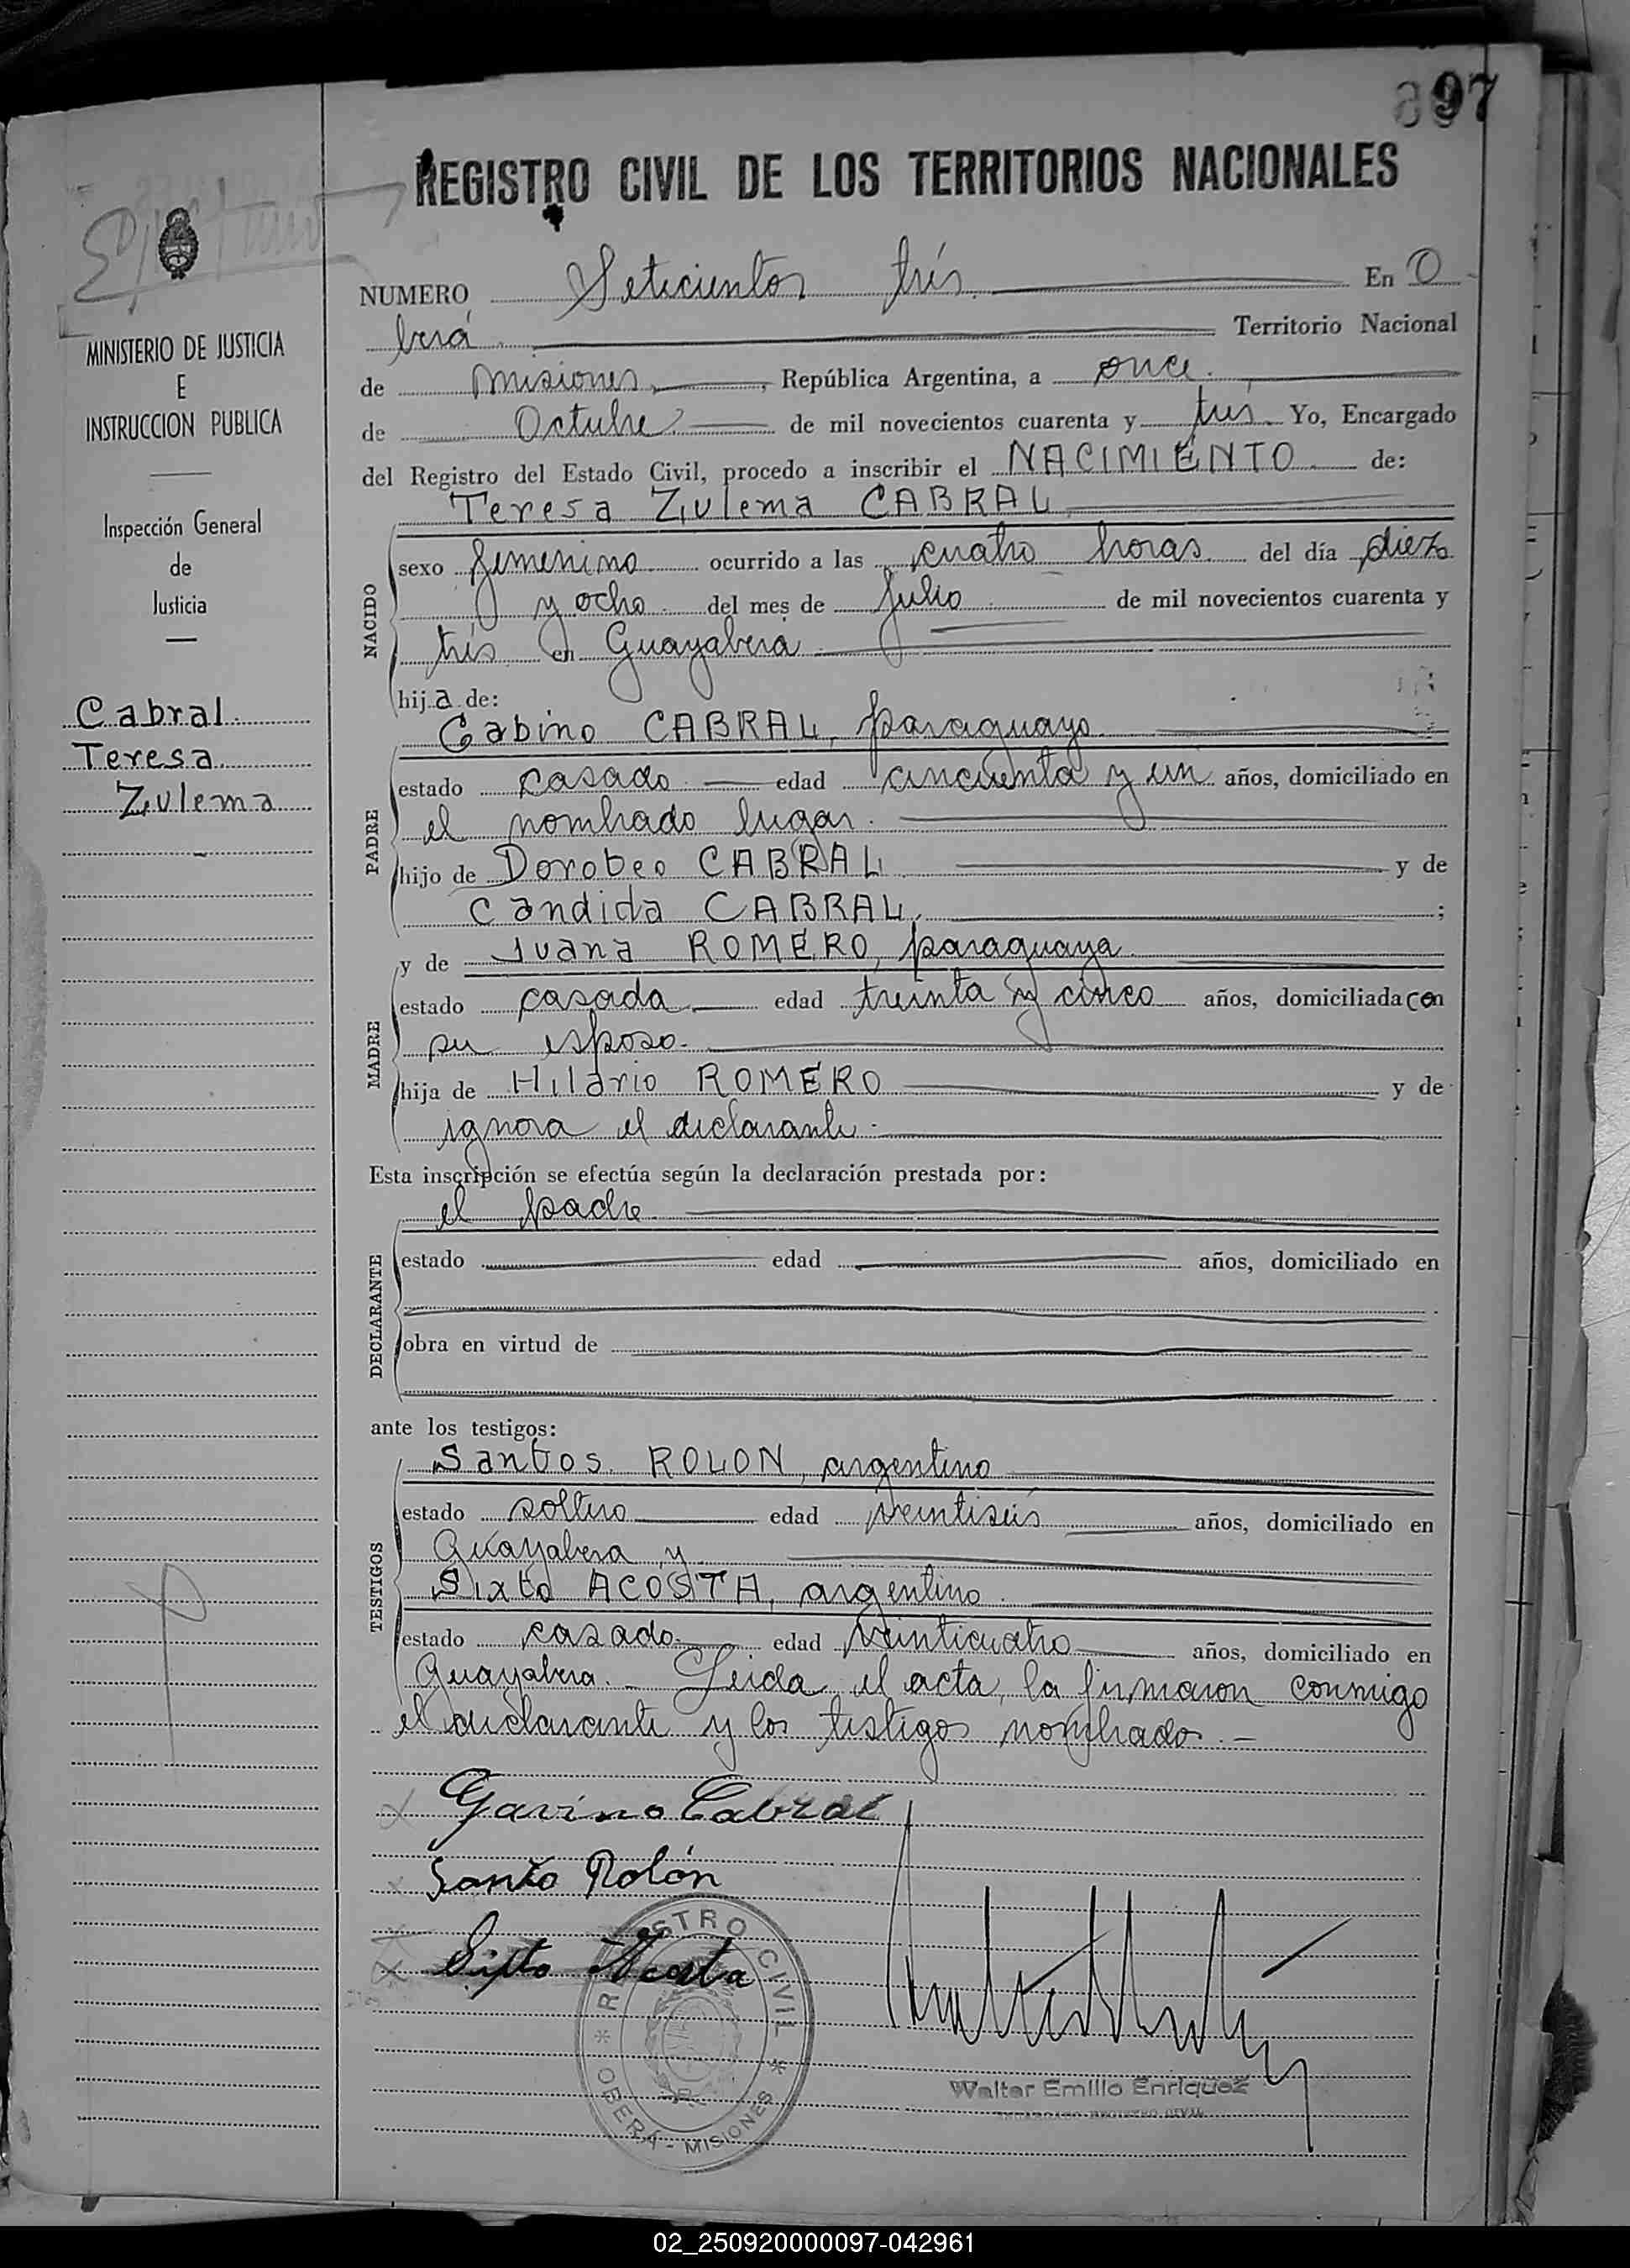 97
REGISTRO CIVIL DE LOS TERRITORIOS NACIONALES
NUMERO Seteicientos trés. En O
berá. Territorio Nacional
de Misiones, República Argentina, a once.
de Octubre de mil novecientos cuarenta y tres. Yo, Encargado
del Registro del Estado Civil, procedo a inscribir el NACIMIENTO de:
Teresa Zulema CABRAL
NACIDO
sexo femenino ocurrido a las cuatro horas. del día diez
y ocho del mes de Julio de mil novecientos cuarenta y
trés en Guayabera
hija de:
Gabino CABRAL, paraguayo.
PADRE
estado casado edad cincuenta y un años, domiciliado en
el nombrado lugar.
hijo de Doroteo CABRAL y de
Candida CABRAL, ;
y de Juana ROMERO, paraguaya.
MADRE
estado casada edad treinta y cinco años, domiciliada con
su esposo.
hija de Hilario ROMERO y de
ignora el declarante.
Esta inscripción se efectúa según la declaración prestada por:
el padre.
DECLARANTE
estado edad años, domiciliado en
obra en virtud de
ante los testigos:
Santos ROLON, argentino
TESTIGOS
estado soltero edad veintiseis años, domiciliado en
Guayabera y
Sixto ACOSTA, argentino.
estado casado. edad veinticuatro años, domiciliado en
Guayabera. - Leida el acta, la firmaron conmigo
el declarante y los testigos nombrados. -
Gavino Cabral
Santo Rolón
Sixto Acosta
REGISTRO CIVIL
OBERÁ - MISIONES
Walter Emilio Enriquez
ENCARGADO REGISTRO CIVIL
MINISTERIO DE JUSTICIA
E
INSTRUCCION PUBLICA
Inspección General
de
Justicia
Cabral
Teresa
Zulema
02_250920000097-042961